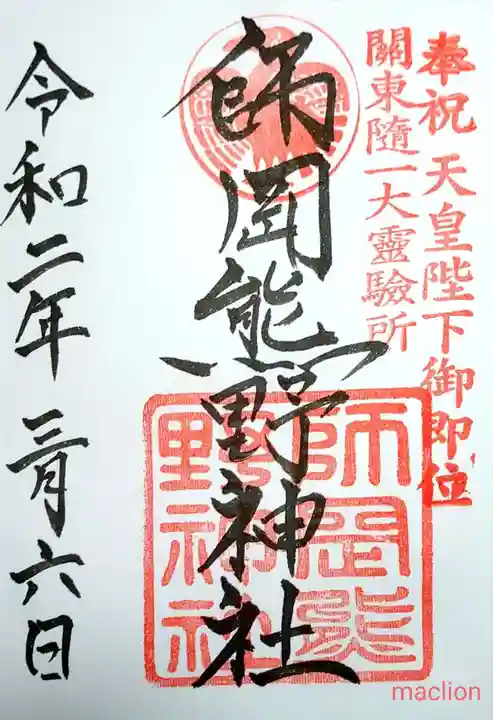 奉祝 天皇陛下御即位
關東隨一大靈驗所
師岡熊野神社
師岡熊野神社
令和二年 三月六日
maclion